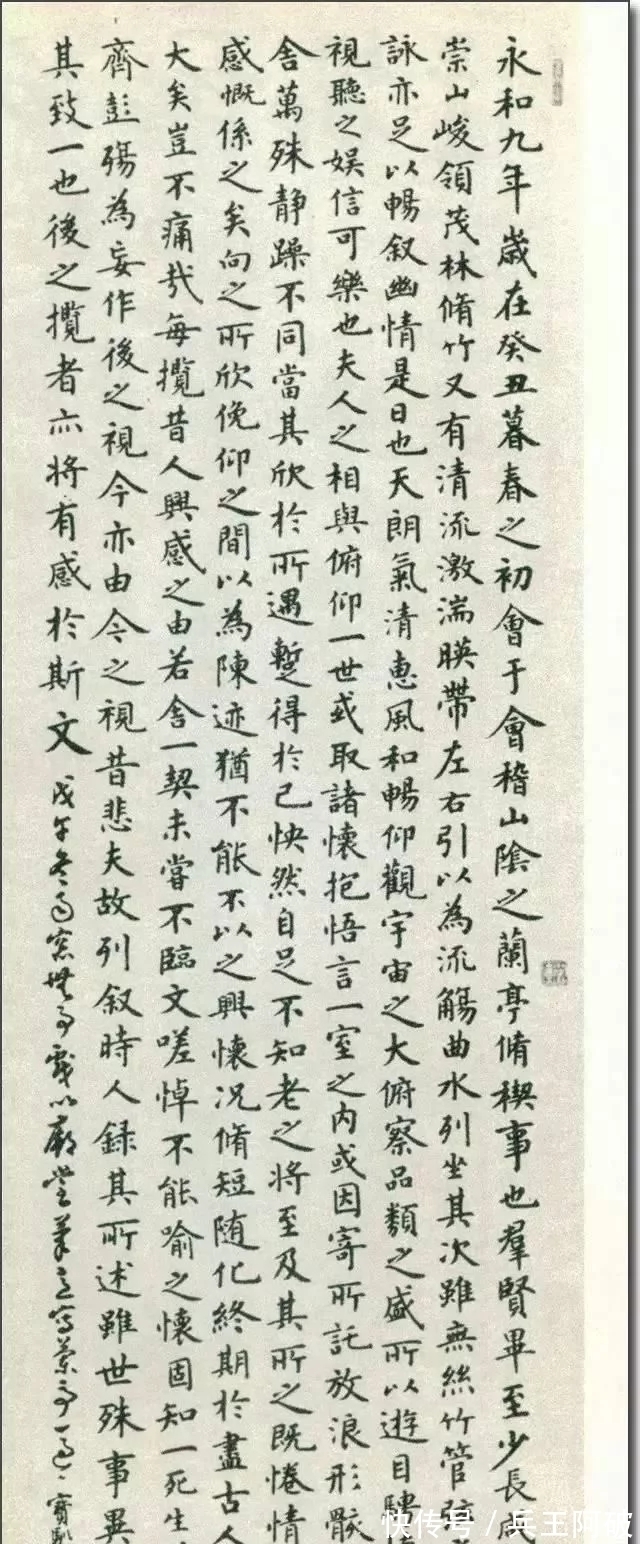 永和九年歲在癸丑暮春之初會于會稽山陰之蘭亭脩稧事也羣賢畢至少長咸
崇山峻領茂林脩竹又有清流激湍暎帶左右引以為流觴曲水列坐其次雖無絲竹管弦
詠亦足以暢叙幽情是日也天朗氣清惠風和暢仰觀宇宙之大俯察品類之盛所以遊目騁
視聽之娱信可樂也夫人之相與俯仰一世或取諸懷抱悟言一室之內或因寄所託放浪形骸
舍萬殊静躁不同當其欣於所遇蹔得於己怏然自足不知老之將至及其所之既惓情
感慨係之矣向之所欣俛仰之間以為陳迹猶不能不以之興懷况脩短随化終期於盡古人
大矣豈不痛哉每攬昔人興感之由若合一契未嘗不臨文嗟悼不能喻之懷固知一死生
齊彭殤為妄作後之視今亦由今之視昔悲夫故列叙時人録其所述雖世殊事異
其致一也後之攬者亦將有感於斯文
戊午冬雨窓無事戲以廟堂筆意寫蘭亭一過
快传号/兵王阿破